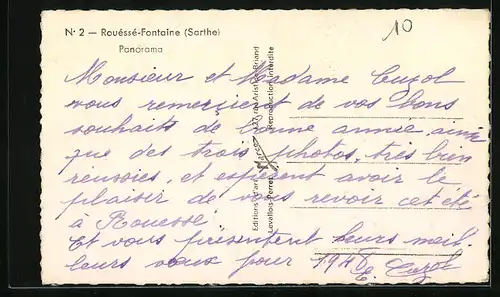 N° 2 — Rouéssé-Fontaine (Sarthe)
Panorama
10
Monsieur et Madame Cuzol
vous remercient de vos bons
souhaits de bonne année ainsi
que des trois photos, très bien
réussies et espèrent avoir le
plaisir de vous revoir cet été
à Rouessé.
Et vous présentent leurs meil-
leurs vœux pour
Editions d'art
Levallois-Perret
Reproduction interdite